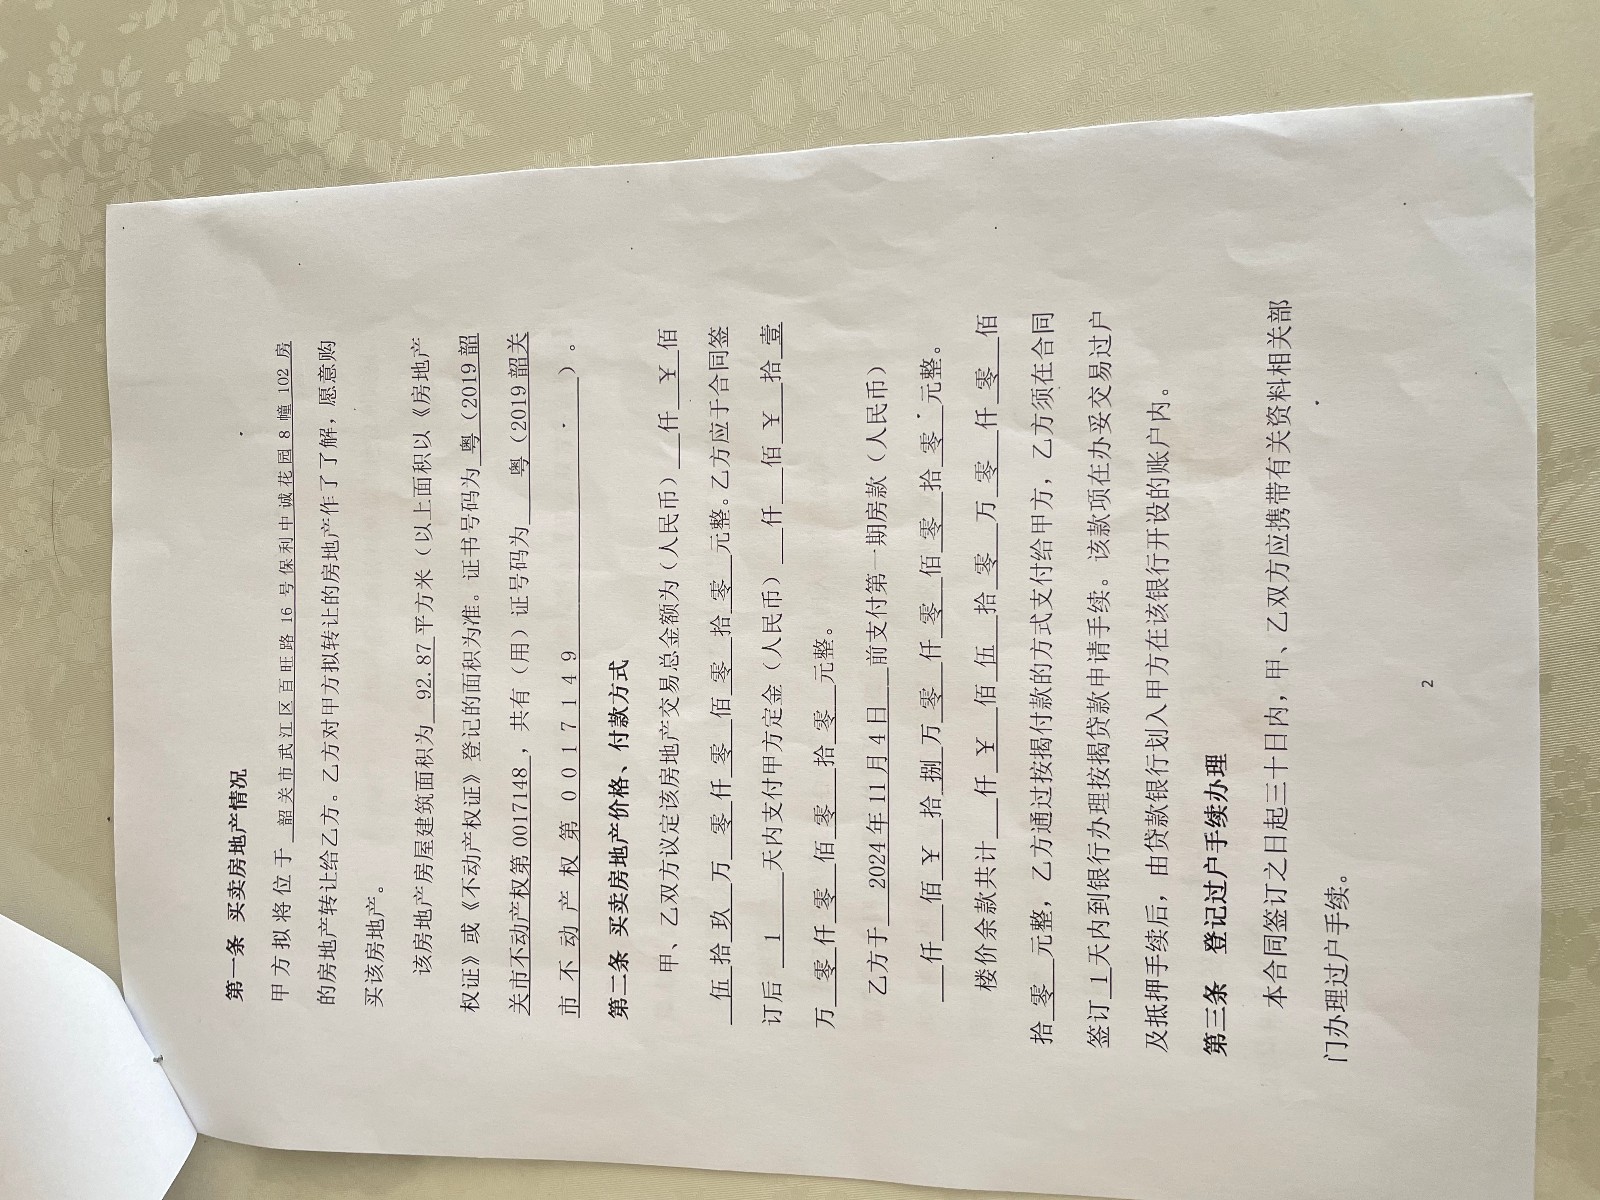 第一条 买卖房地产情况
甲方拟将位于 韶关市武江区百旺路16号保利中诚花园8幢102房
的房地产转让给乙方。乙方对甲方拟转让的房地产作了了解，愿意购
买该房地产。
该房地产房屋建筑面积为 92.87 平方米（以上面积以《房地产
权证》或《不动产权证》登记的面积为准。证书号码为 粤（2019 韶
关市不动产权第 0017148 ，共有（用）证号码为 粤（2019 韶关
市不动产权第0017149 ）。
第二条 买卖房地产价格、付款方式
甲、乙双方议定该房地产交易总金额为（人民币） 仟 ¥ 佰
伍 拾 玖 万 零 仟 零 佰 零 拾 零 元整。乙方应于合同签
订后 1 天内支付甲方定金（人民币） 仟 佰 ¥ 拾 壹
万 零 仟 零 佰 零 拾 零 元整。
乙方于 2024年11月4日 前支付第一期房款（人民币）
仟 佰 ¥ 拾 捌 万 零 仟 零 佰 零 拾 零 元整。
楼价余款共计 仟 ¥ 佰 伍 拾 零 万 零 仟 零 佰
拾 零 元整，乙方通过按揭付款的方式支付给甲方，乙方须在合同
签订 1 天内到银行办理按揭贷款申请手续。该款项在办妥交易过户
及抵押手续后，由贷款银行划入甲方在该银行开设的账户内。
第三条 登记过户手续办理
本合同签订之日起三十日内，甲、乙双方应携带有关资料相关部
门办理过户手续。
2